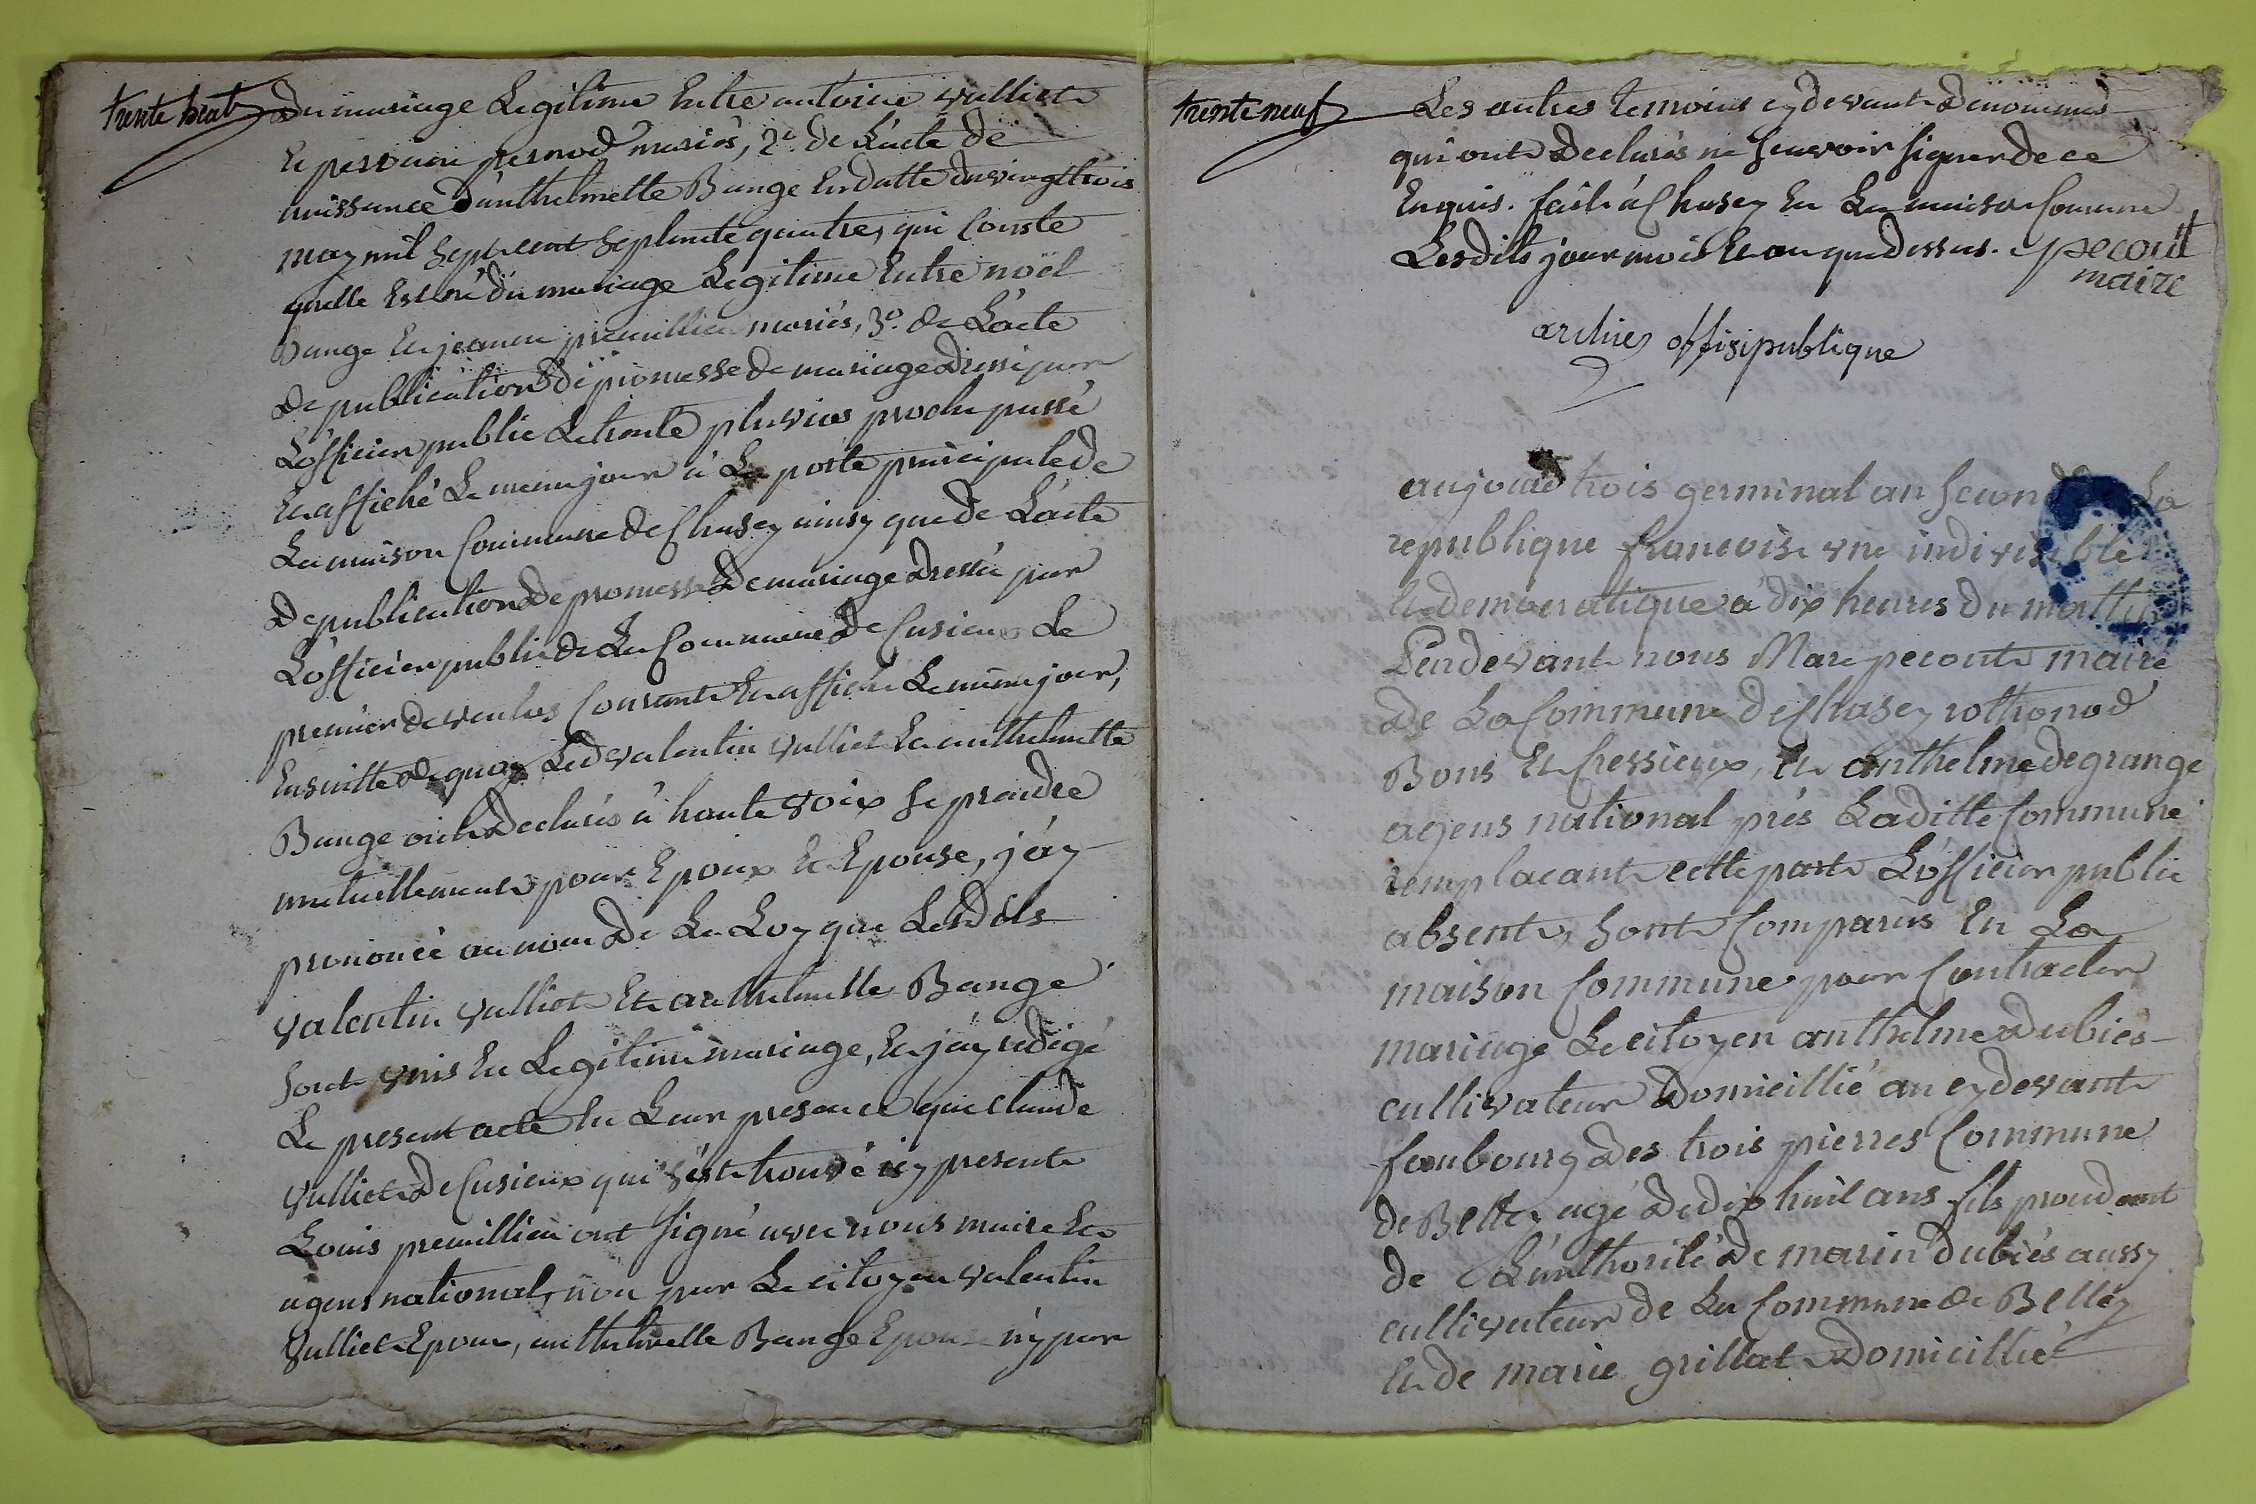 trente heut
Du mariage Legitime Entre antoine vulliet
Et pernod mariés, 2.° de L'acte de
naissance d'anthelmette Bange En datte du vingt trois
may mil sept cent Septante quatre, qui Conste
quelle Est né du mariage Legitime Entre noël
Bange Et jeanne premillieu mariés, 3.° de L'acte
De publication de promesse de mariage Dressé par
L'officier public Le trente pluvios proche passé
Et affiché Le meme jour à La porte principale de
La maison Commune de Chasey ainsy que de L'acte
De publication De promesse De mariage Dressée par
L'officier public de La Commune De Cusieux Le
premier de ventos Courant Et affiché Le même jour,
Ensuitte de quoy Led valentin vulliet Et anthelmette
Bange ont Déclarés à haute voix Se prendre
mutuellement pour Epoux Et Epouse, j'áy
prononcé au nom De La Loy que Lesdits
valentin vulliet Et anthelmette Bange
Sont unis En Legitime mariage, Et j'áy redigé
Le present acte En Leur presence que claude
vulliet De Cusieux qui s'est trouvé icy present
Louis premillieu ont Signé avec nous maire Et
agens national, non par Le citoyen valentin
vulliet Epoux, anthelmette Bange Epouse ny par
trente neuf
Les autres temoins cy devant Denommés
qui ont Declarés ne Scavoir Signer de ce
Enquis. fait à Chasey En La maison Commune
Lesdits jour mois Et an que dessus. pecout
maire
offisipublique
aujourd trois germinal an Second de La
republique francoise une indivisible
Et democratique à dix heures du mattin
Pardevant nous Marc pecout maire
De La Commune de Chasey rothonod
Bons Et Cressieux, Et anthelme degrange
agens national prés Laditte Commune
remplacant cette part L'officier public
absent, Sont Comparûs En La
maison Commune pour Contracter
mariage Le citoyen anthelme Dubiés
cultivateur Domicillié au cy devant
faubourg Des trois pierres Commune
de Belley agé De dix huit ans fils
de L'authorité De marin Dubiés aussy
cultivateur de La Commune de Belley
Et de marie grillat Domicillié